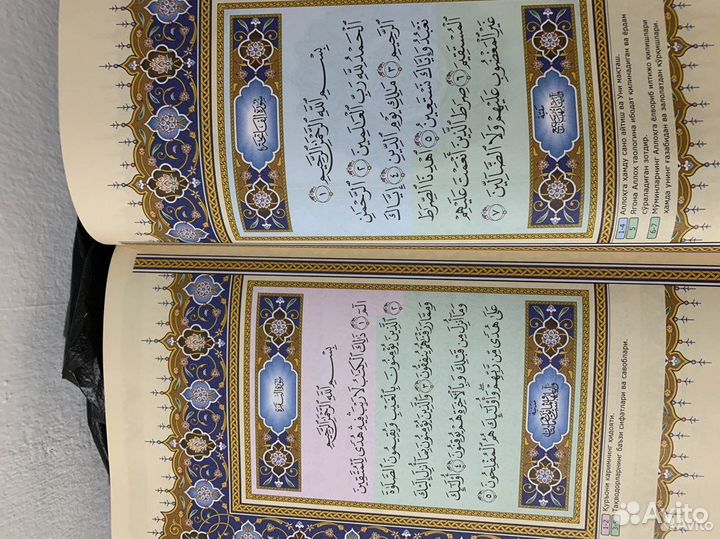 سُورَةُ ٱلْفَاتِحَةِ
بِسْمِ ٱللَّهِ ٱلرَّحْمَٰنِ ٱلرَّحِيمِ ١
ٱلْحَمْدُ لِلَّهِ رَبِّ ٱلْعَٰلَمِينَ ٢ ٱلرَّحْمَٰنِ
ٱلرَّحِيمِ ٣ مَٰلِكِ يَوْمِ ٱلدِّينِ ٤ إِيَّاكَ
نَعْبُدُ وَإِيَّاكَ نَسْتَعِينُ ٥ ٱهْدِنَا ٱلصِّرَٰطَ
ٱلْمُسْتَقِيمَ ٦ صِرَٰطَ ٱلَّذِينَ أَنْعَمْتَ عَلَيْهِمْ
غَيْرِ ٱلْمَغْضُوبِ عَلَيْهِمْ وَلَا ٱلضَّآلِّينَ ٧
1-4 Аллоҳга ҳамду сано айтиш ва Уни мақташ.
5 Ягона Аллоҳ таологина ибодат қилинадиган ва ёрдам
сўраладиган зотдир.
6-7 Мўминларнинг Аллоҳга ёлвориб илтижо қилишлари
ҳамда унинг ғазабидан ва залолатдан қўрқишлари.
سُورَةُ ٱلْبَقَرَةِ
بِسْمِ ٱللَّهِ ٱلرَّحْمَٰنِ ٱلرَّحِيمِ
الٓمٓ ١ ذَٰلِكَ ٱلْكِتَٰبُ لَا رَيْبَ فِيهِ هُدًى لِّلْمُتَّقِينَ
٢ ٱلَّذِينَ يُؤْمِنُونَ بِٱلْغَيْبِ وَيُقِيمُونَ ٱلصَّلَوٰةَ
وَمِمَّا رَزَقْنَٰهُمْ يُنفِقُونَ ٣ وَٱلَّذِينَ يُؤْمِنُونَ بِمَآ أُنزِلَ إِلَيْكَ
وَمَآ أُنزِلَ مِن قَبْلِكَ وَبِٱلْءَاخِرَةِ هُمْ يُوقِنُونَ ٤ أُوْلَٰٓئِكَ
عَلَىٰ هُدًى مِّن رَّبِّهِمْ وَأُوْلَٰٓئِكَ هُمُ ٱلْمُفْلِحُونَ ٥
1-2 Қуръони каримнинг ҳидояти.
Тақводорларнинг баъзи сифатлари ва савоблари.
Avito
Avito